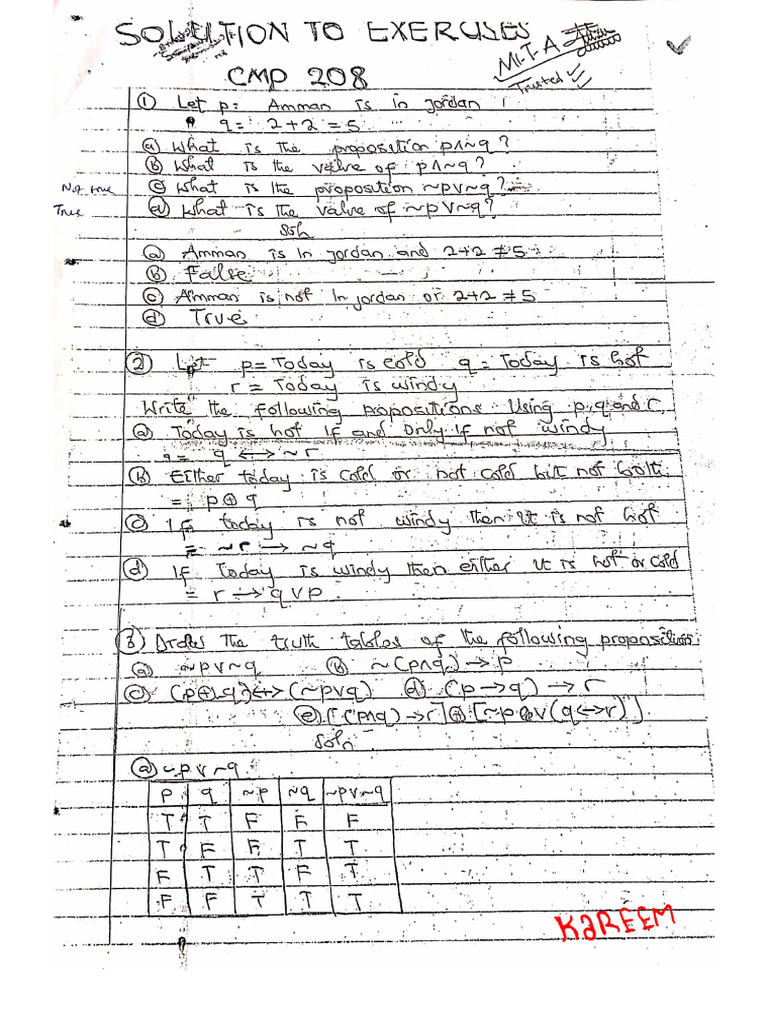 SOLUTION TO EXERCISES
CMP 208
Mr. T. A
Trusted
① Let p: Amman is in Jordan
q= 2+2 = 5
ⓐ What is the proposition p∧~q?
ⓑ What is the value of p∧~q?
Not true ⓒ What is the proposition ~p∨~q?
True ⓓ What is the value of ~p∨~q?
Soln
ⓐ Amman is in Jordan and 2+2 ≠ 5
ⓑ False
ⓒ Amman is not in Jordan or 2+2 ≠ 5
ⓓ True
② Let p= Today is cold q = Today is hot
r = Today is windy
Write the following propositions using p, q and r.
ⓐ Today is hot if and only if not windy
= q ↔ ~r
ⓑ Either today is cold or not cold but not both
= p⊕q
ⓒ If today is not windy then it is not hot
= ~r → ~q
ⓓ If Today is windy then either it is hot or cold
= r → q∨p
③ Draw the truth tables of the following proposition:
ⓐ ~p∨~q ⓑ ~(p∧q) → p
ⓒ (p⊕q)↔(~p∨q) ⓓ (p→q) → r
ⓔ [(p∧q) → r]⊕[~p∨(q↔r)]
Soln
ⓐ ~p∨~q
p q ~p ~q ~p∨~q
T T F F F
T F F T T
F T T F T
F F T T T
KAREEM